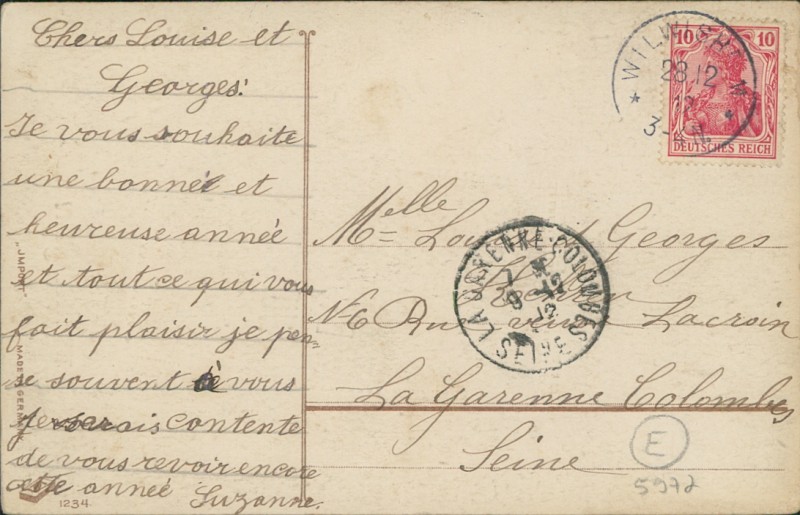 Chers Louise et
Georges!
Je vous souhaite
une bonnée et
heureuse année
et tout ce qui vous
fait plaisir je pen-
se souvent à vous
Je serais contente
de vous revoir encore
cette année Suzanne.
1234
MADE GERMANY
10 10
DEUTSCHES REICH
WILWISHEIM
28 12
12
3-4 N.
Melle
M= Georges
Rue Lacroin
La Garenne Colombes
Seine
LA GARENNE-COLOMBES
SEINE
E
5972